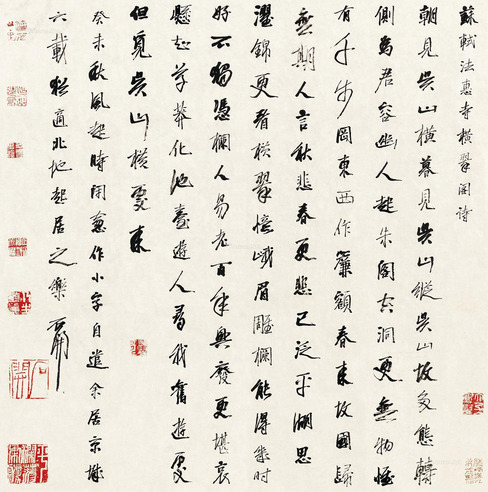 蘇軾法惠寺橫翠閣詩
朝見吳山橫暮見吳山縱吳山故多態轉
側為君容幽人起朱閣空洞更無物惟
有千步岡東西作簾額春來故國歸
無期人言秋悲春更悲已泛平湖思
濯錦更看橫翠憶峨眉雕欄能得幾時
好不獨憑欄人易老百年興廢更堪哀
懸知草莽化池臺遊人尋我舊遊處
但覓吳山橫處來
癸未秋風起時閑作小字自遣余居京城
六載猶適北地起居之樂 石開
石開